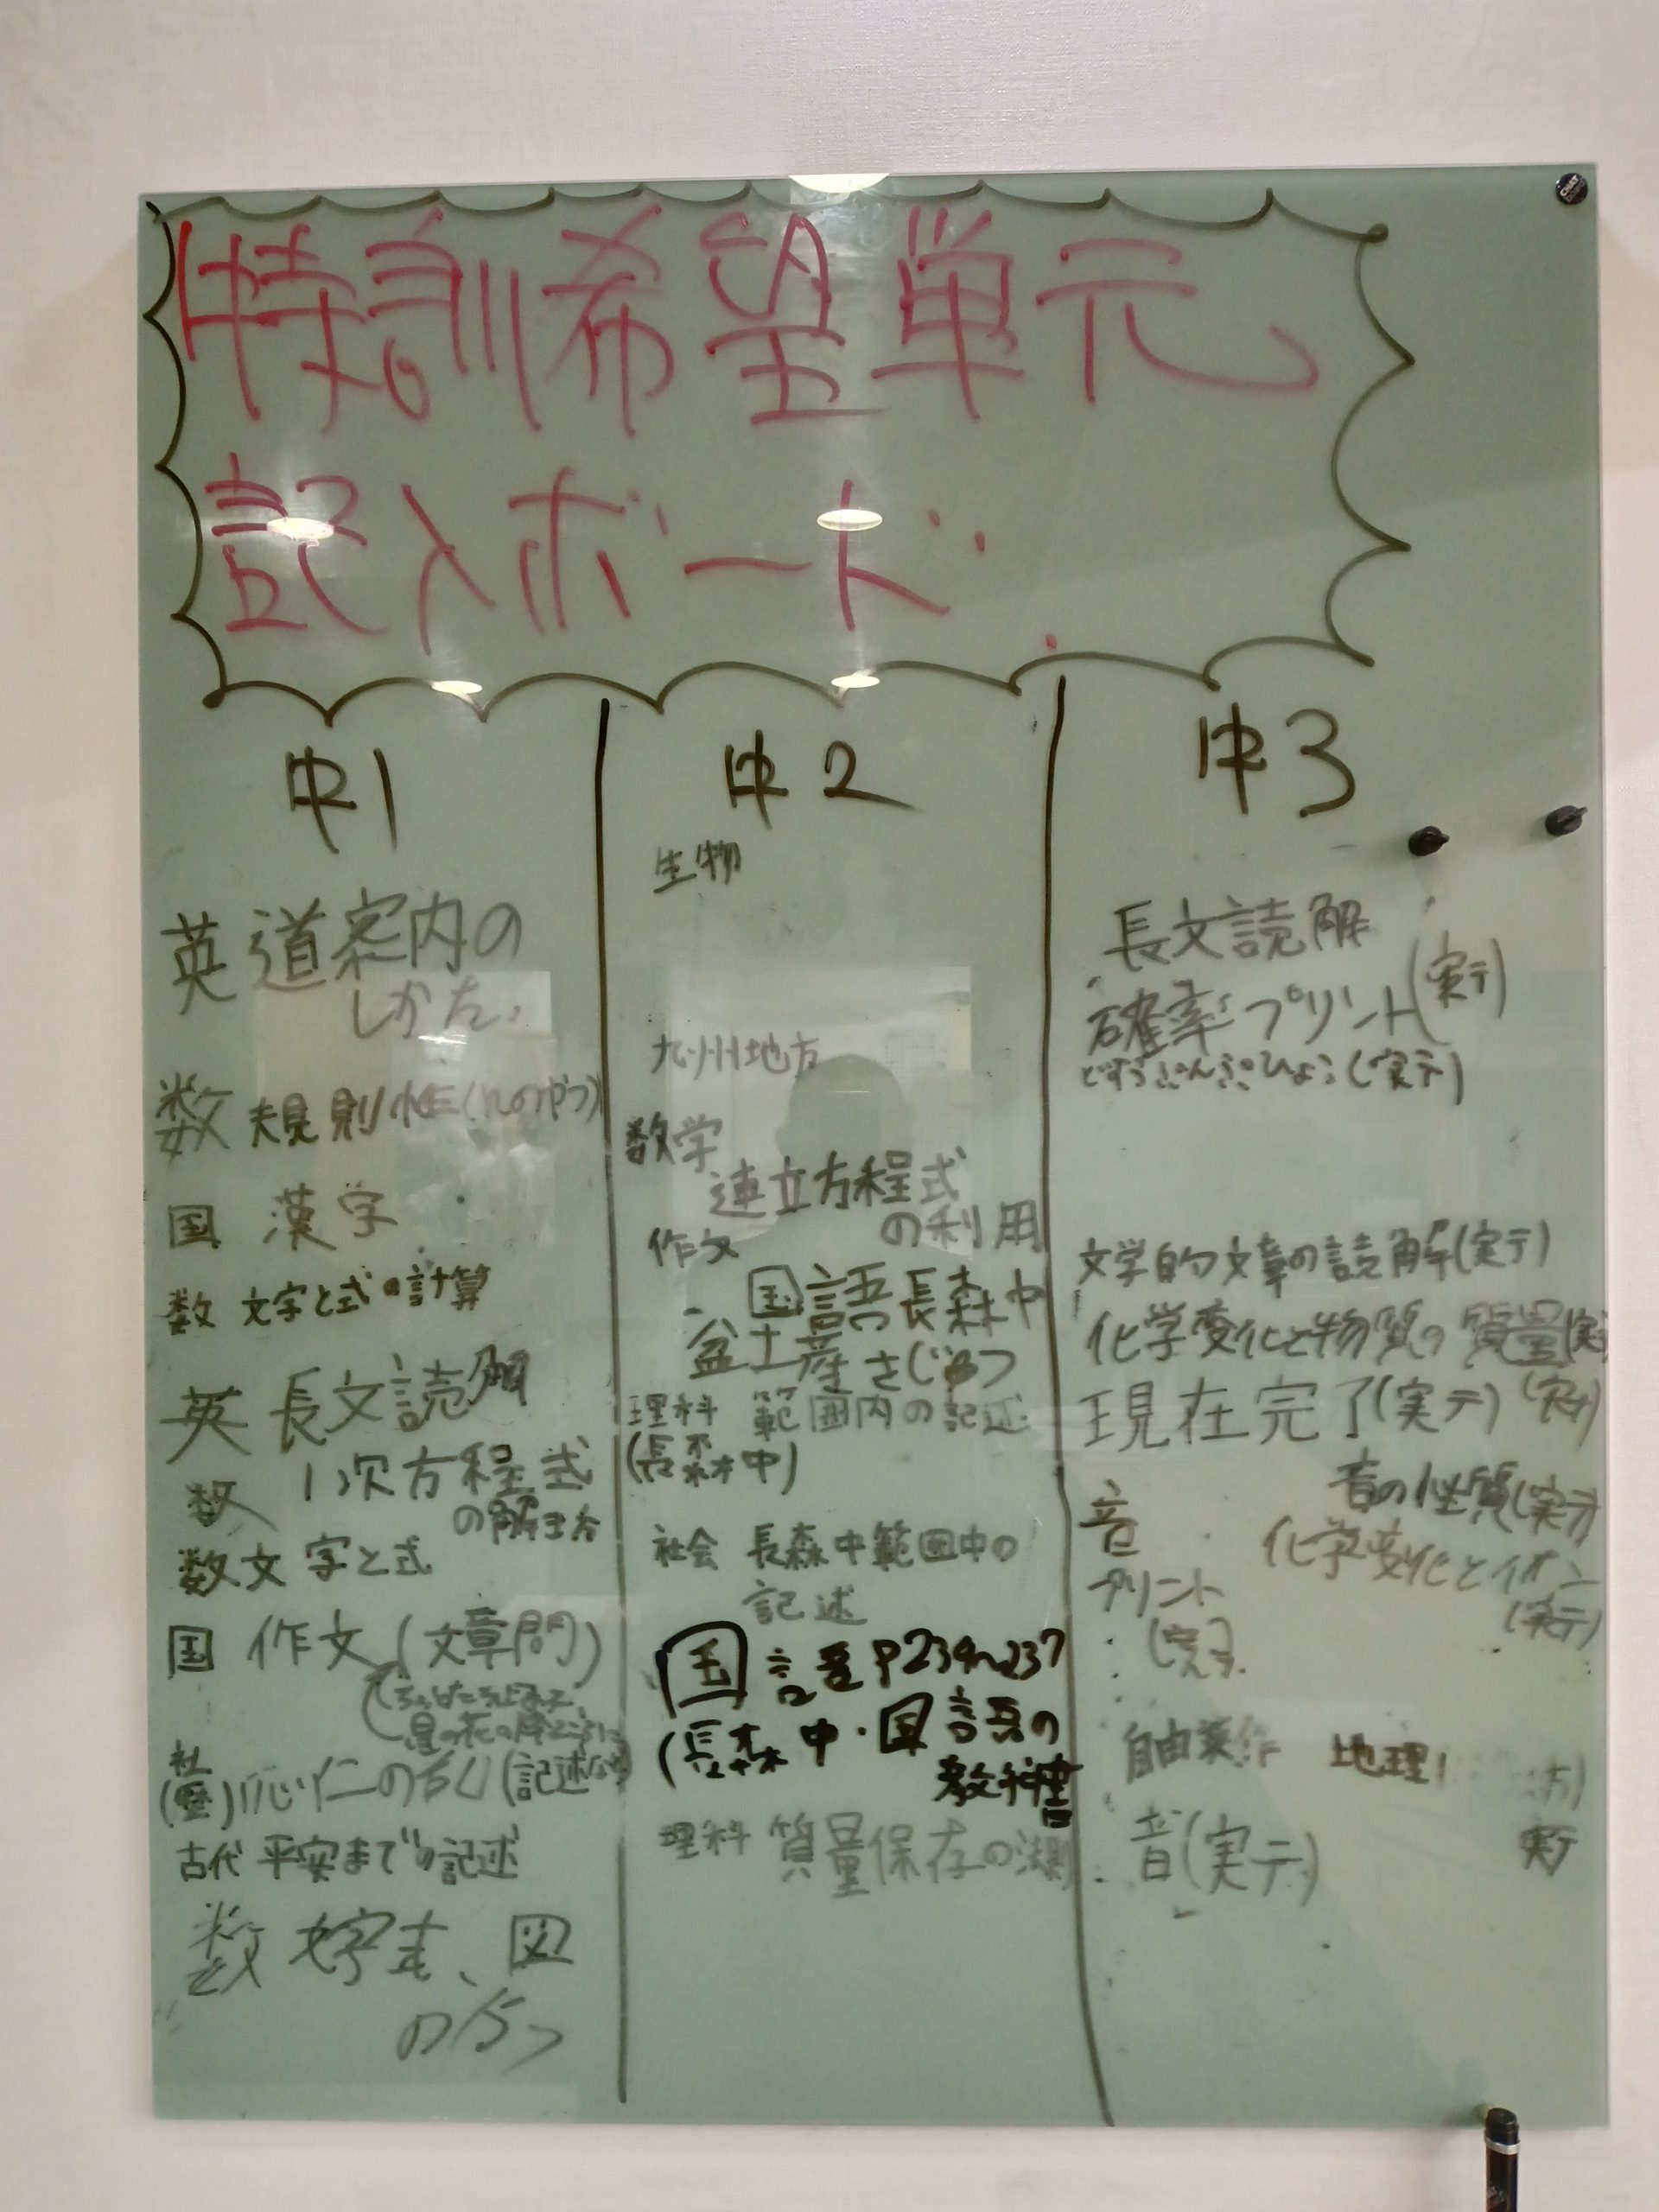 特訓希望単元
記入ボード.
中1
英 道案内の
しかた.
数 規則性(nのやつ)
国 漢字
数 文字と式の計算
英 長文読解
数 1次方程式
の解き方
数 文字と式
国 作文(文章問)
星の花の降るころに
社
(歴)応仁の乱(記述など)
古代 平安までの記述
数 文字式、図
のやつ
中2
生物
九州地方
数学
連立方程式
の利用
作文
国語 長森中
盆土産 きじゅつ
理科 範囲内の記述
(長森中)
社会 長森中範囲中の
記述
国語P234~237
(長森中・国語の
教科書
理科 質量保存の法則
中3
長文読解
確率プリント(実テ)
どすうぶんぷひょう(実テ)
文学的文章の読解(実テ)
化学変化と物質の質量(実テ)
現在完了(実テ)
音の性質(実テ)
音
プリント
(実テ)
化学変化とイオン
(実テ)
自由英作
地理
音(実テ)
実テ